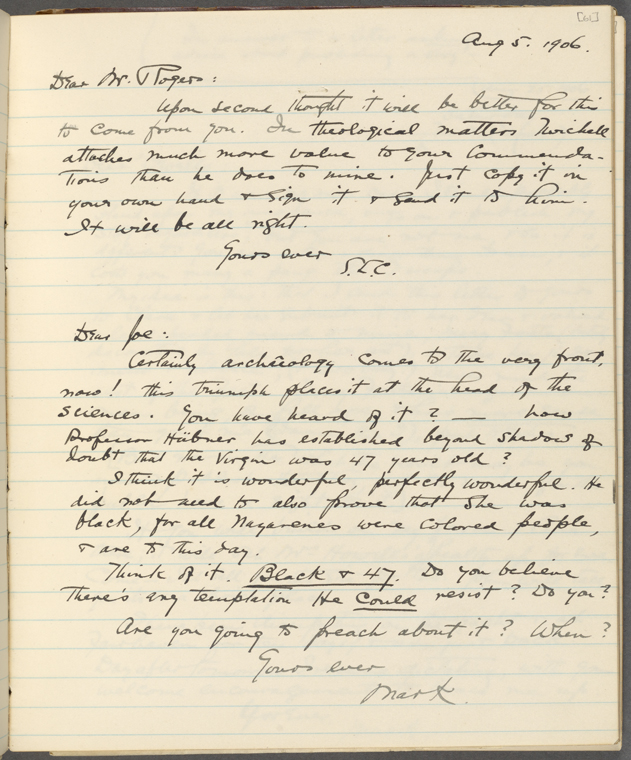 [61]
Aug 5. 1906.
Dear Mr. Rogers:
Upon second thought it will be better for this
to come from you. In theological matters Twichell
attaches much more value to your Commenda-
tions than he does to mine. Just copy it in
your own hand & sign it & send it to him.
It will be all right.
Yours ever
S.L.C.
Dear Joe:
Certainly archæology comes to the very front,
now! this triumph places it at the head of the
sciences. You have heard of it? — how
Professor Hübner has established beyond shadow of
doubt that the Virgin was 47 years old?
I think it is wonderful, perfectly wonderful. He
did not need to also prove that she was
black, for all Nazarenes were colored people,
& are to this day.
Think of it. Black & 47. Do you believe
there's any temptation He could resist? Do you?
Are you going to preach about it? When?
Yours ever
Mark